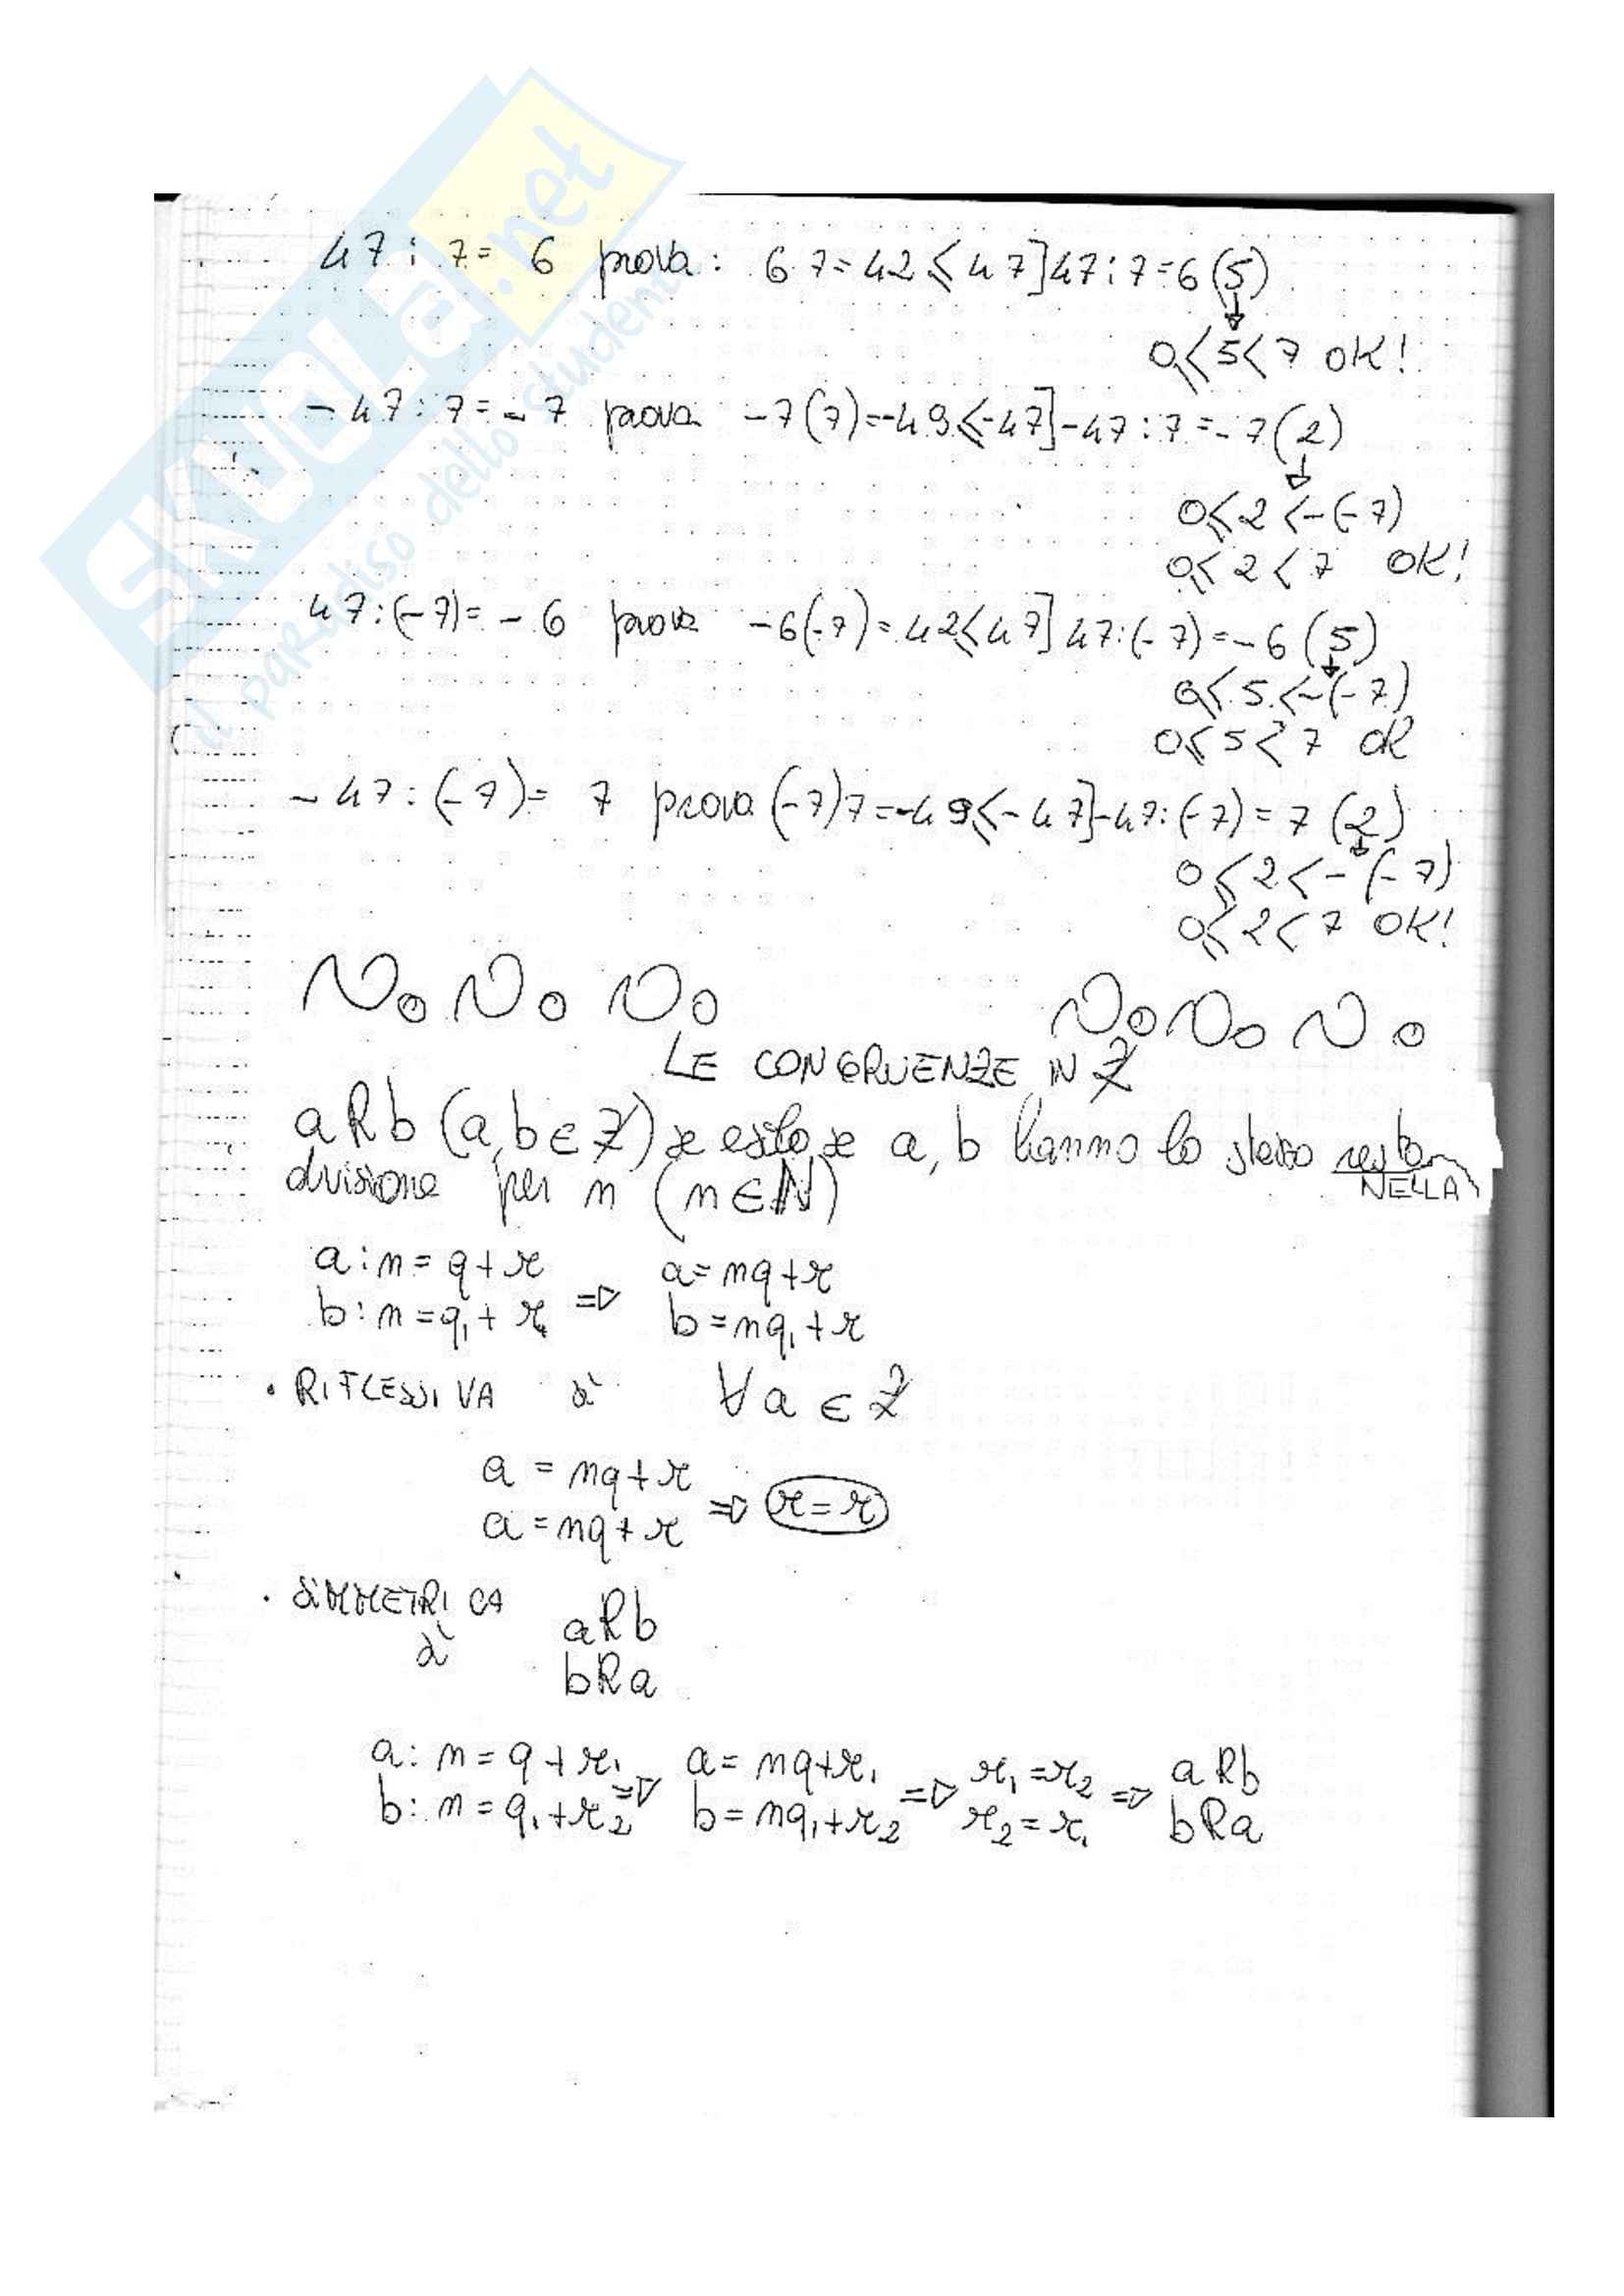 SKUOLA.net
il paradiso dello studente
47 : 7 = 6 prova : 6·7 = 42 ⩽ 47] 47 : 7 = 6 (5)
0 ⩽ 5 < 7 OK!
- 47 : 7 = - 7 prova -7(7) = -49 ⩽ -47] -47 : 7 = - 7 (2)
0 ⩽ 2 < -(-7)
0 ⩽ 2 < 7 OK!
47 : (-7) = - 6 prova -6(-7) = 42 ⩽ 47] 47 : (-7) = - 6 (5)
0 ⩽ 5 < -(-7)
0 ⩽ 5 < 7 OK
- 47 : (-7) = 7 prova (-7)7 = -49 ⩽ -47] -47 : (-7) = 7 (2)
0 ⩽ 2 < -(-7)
0 ⩽ 2 < 7 OK!
LE CONGRUENZE IN Z
aRb (a,b ∈ Z) se e solo se a, b hanno lo stesso resto NELLA
divisione per n (n ∈ N)
a : n = q + r ⇒ a = nq + r
b : n = q₁ + r b = nq₁ + r
• RIFLESSIVA sì ∀ a ∈ Z
a = nq + r
a = nq + r ⇒ r = r
• SIMMETRICA aRb
sì bRa
a : n = q + r₁ ⇒ a = nq + r₁ ⇒ r₁ = r₂ ⇒ aRb
b : n = q₁ + r₂ b = nq₁ + r₂ r₂ = r₁ bRa